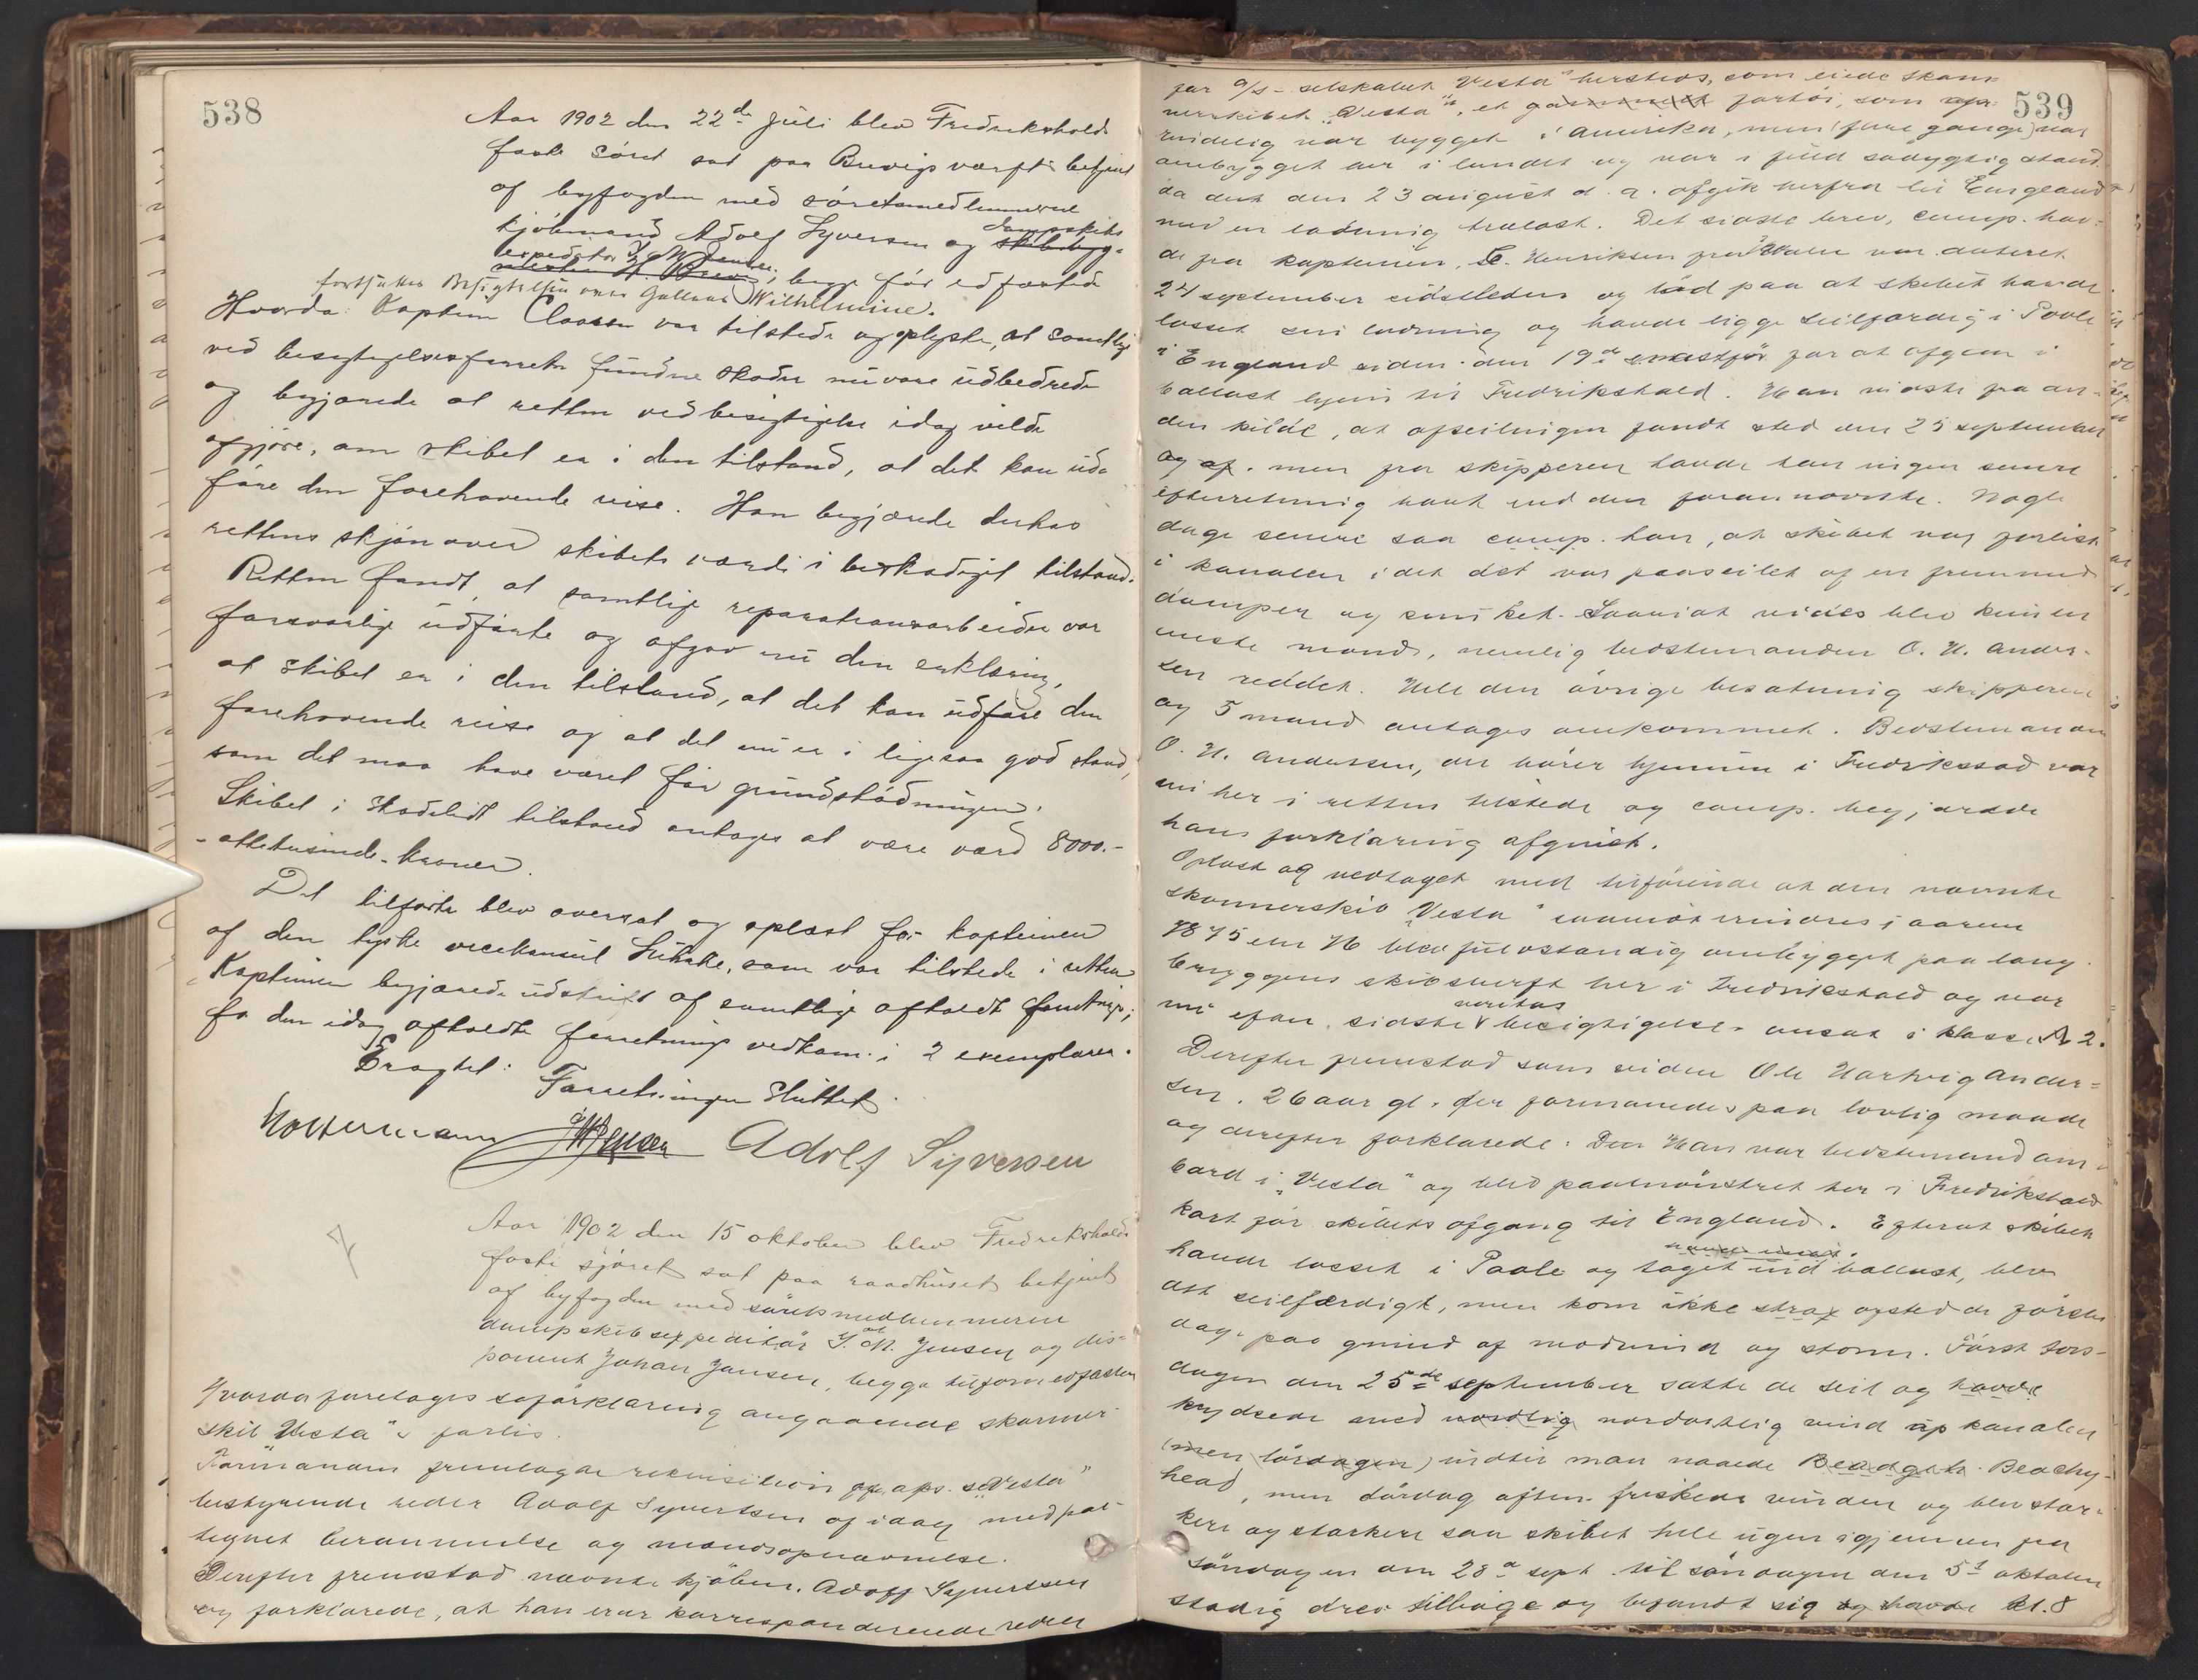 538
Aar 1902 den 22de Juli blev Fredrikshalds
faste søret sat paa Brevigs værft betjent
af byfogden med søretsmedlemmerne
kjøbmand Adolf Syversen og skibsbyg- dampskibs
expeditør J. M. Jensen, begge før edfæstede
fortsattes Besigtelsen over Galleas Wilhelmine.
Hvorda: Kaptein Claasen var tilstede og oplyste, at samtlige
ved besigtigelsesforretn. fundne skader nu vare udbedrede
og begjærede at retten ved besigtigelse idag vilde
afgjøre, om skibet er i den tilstand, at det kan ud-
føre den forehavende reise. Han begjærede derhos
rettens skjøn over skibets værdi i beskadiget tilstand.
Retten fandt, at samtlige reparationsarbeider var
forsvarlige udførte og afgav nu den erklæring,
at skibet er i den tilstand, at det kan udføre den
forehavende reise og at det nu er i ligesaa god stand,
som det maa have været før grundstødningen.
Skibet i skadelidt tilstand antages at være værd 8000.-
- ottetusinde - kroner.
Det tilførte blev oversat og oplæst for kapteinen
af den tyske vicekonsul, som var tilstede i retten
Kapteinen begjærede udskrift af samtlige afholdt forretninger,
for den idag afholdte forretnings vedkom. i 2 exemplarer.
Forretningen sluttet.
JMJensen Adolf Syversen
Aar 1902 den 15 oktober blev Fredrikshalds
faste sjøret sat paa raadhuset betjent
af byfogden med søretsmedlemmerne
dampskibsexpeditør J. M. Jensen og dis-
ponent Johan Jansen, begge tilforn edfæstede
Hvorda foretoges søforklaring angaaende skonner-
skib "Vesta"s forlis.
Formanden fremlagde rekvisition aps. s. "Vesta"
bestyrende reder Adolf Syvertsen af idag med paa-
tegnet berammelse og mandsopnævnelse.
Derefter fremstod nævnte kjøbm. Adolf Syvertsen
og forklarede, at han er korresponderende reder
539
for a/s - selskabet "Vesta" hersteds, som eiede skon-
nerskibet "Vesta", et gammelt fartøi, som op-
rindelig var bygget i Amerika, men (flere gange) var
ombygget her i landet og var i fuld sødygtig stand
da det den 23 august d. a. afgik herfra til England
med en ladning trælast. Det sidste brev, comp. hav-
de fra kapteinen, C. Henriksen fra Hvaler var dateret
24 september sidstleden og lød paa at skibet havde
losset sin ladning og havde ligge seilfærdig i Poole
i England siden den 19de for at afgaa i
ballast hjem til Fredrikshald. Han vidste fra an-
den kilde, at afseilingen fandt sted den 25 september
og af. men fra skipperen havde han ingen senere
efterretning havt end den forannævnte. Nogle
dage senere saa comp. han, at skibet var forlist
i kanalen idet det var paaseilet af en fremmed
damper og sunket. Saavidt vides blev kun en
eneste mand, nemlig bedstemanden O. H. Ander-
sen reddet. Hele den øvrige besætning skipperen
og 5 mand antages omkommet. Bedstemanden
O. H. Andersen, der hører hjemme i Fredriksstad var
nu her i retten tilstede og comp. begjærede
hans forklaring afgivet.
Oplæst og vedtaget med tilføiende at den nævnte
skonnerskib "Vesta" saavidt erindres i aarene
1875 eller 76 blev fuldstændig ombygget paa Lang-
bryggens skibsværft her i Fredrikshald og var
nu efter sidste veritas besigtigelse ansat i klasse A 2.
Derefter fremstod som vidne Ole Hartvig Ander-
sen, 26 aar gl. der formanedes paa lovlig maade
og derefter forklarede: Den Han var bedstemand om-
bord i "Vesta" og blev paamønstret her i Fredrikshald
kort før skibets afgang til England. Efterat skibet
havde losset i Poole og taget ind ballast, blev
det seilfærdigt, men kom ikke strax afsted de første
dage paa grund af modvind og storm. Først tors-
dagen den 25de september satte de seil og havde
krydsede med nordlig nordostlig vind op kanalen
(men lørdagen) indtil man naaede Beachy-
head, men lørdag aften friskede vinden og blev stær-
kere og stærkere saa skibet hele ugen igjennem fra
søndagen den 28de sept til søndagen den 5te oktober
stadig drev tilbage og befandt sig og havde kl. 8